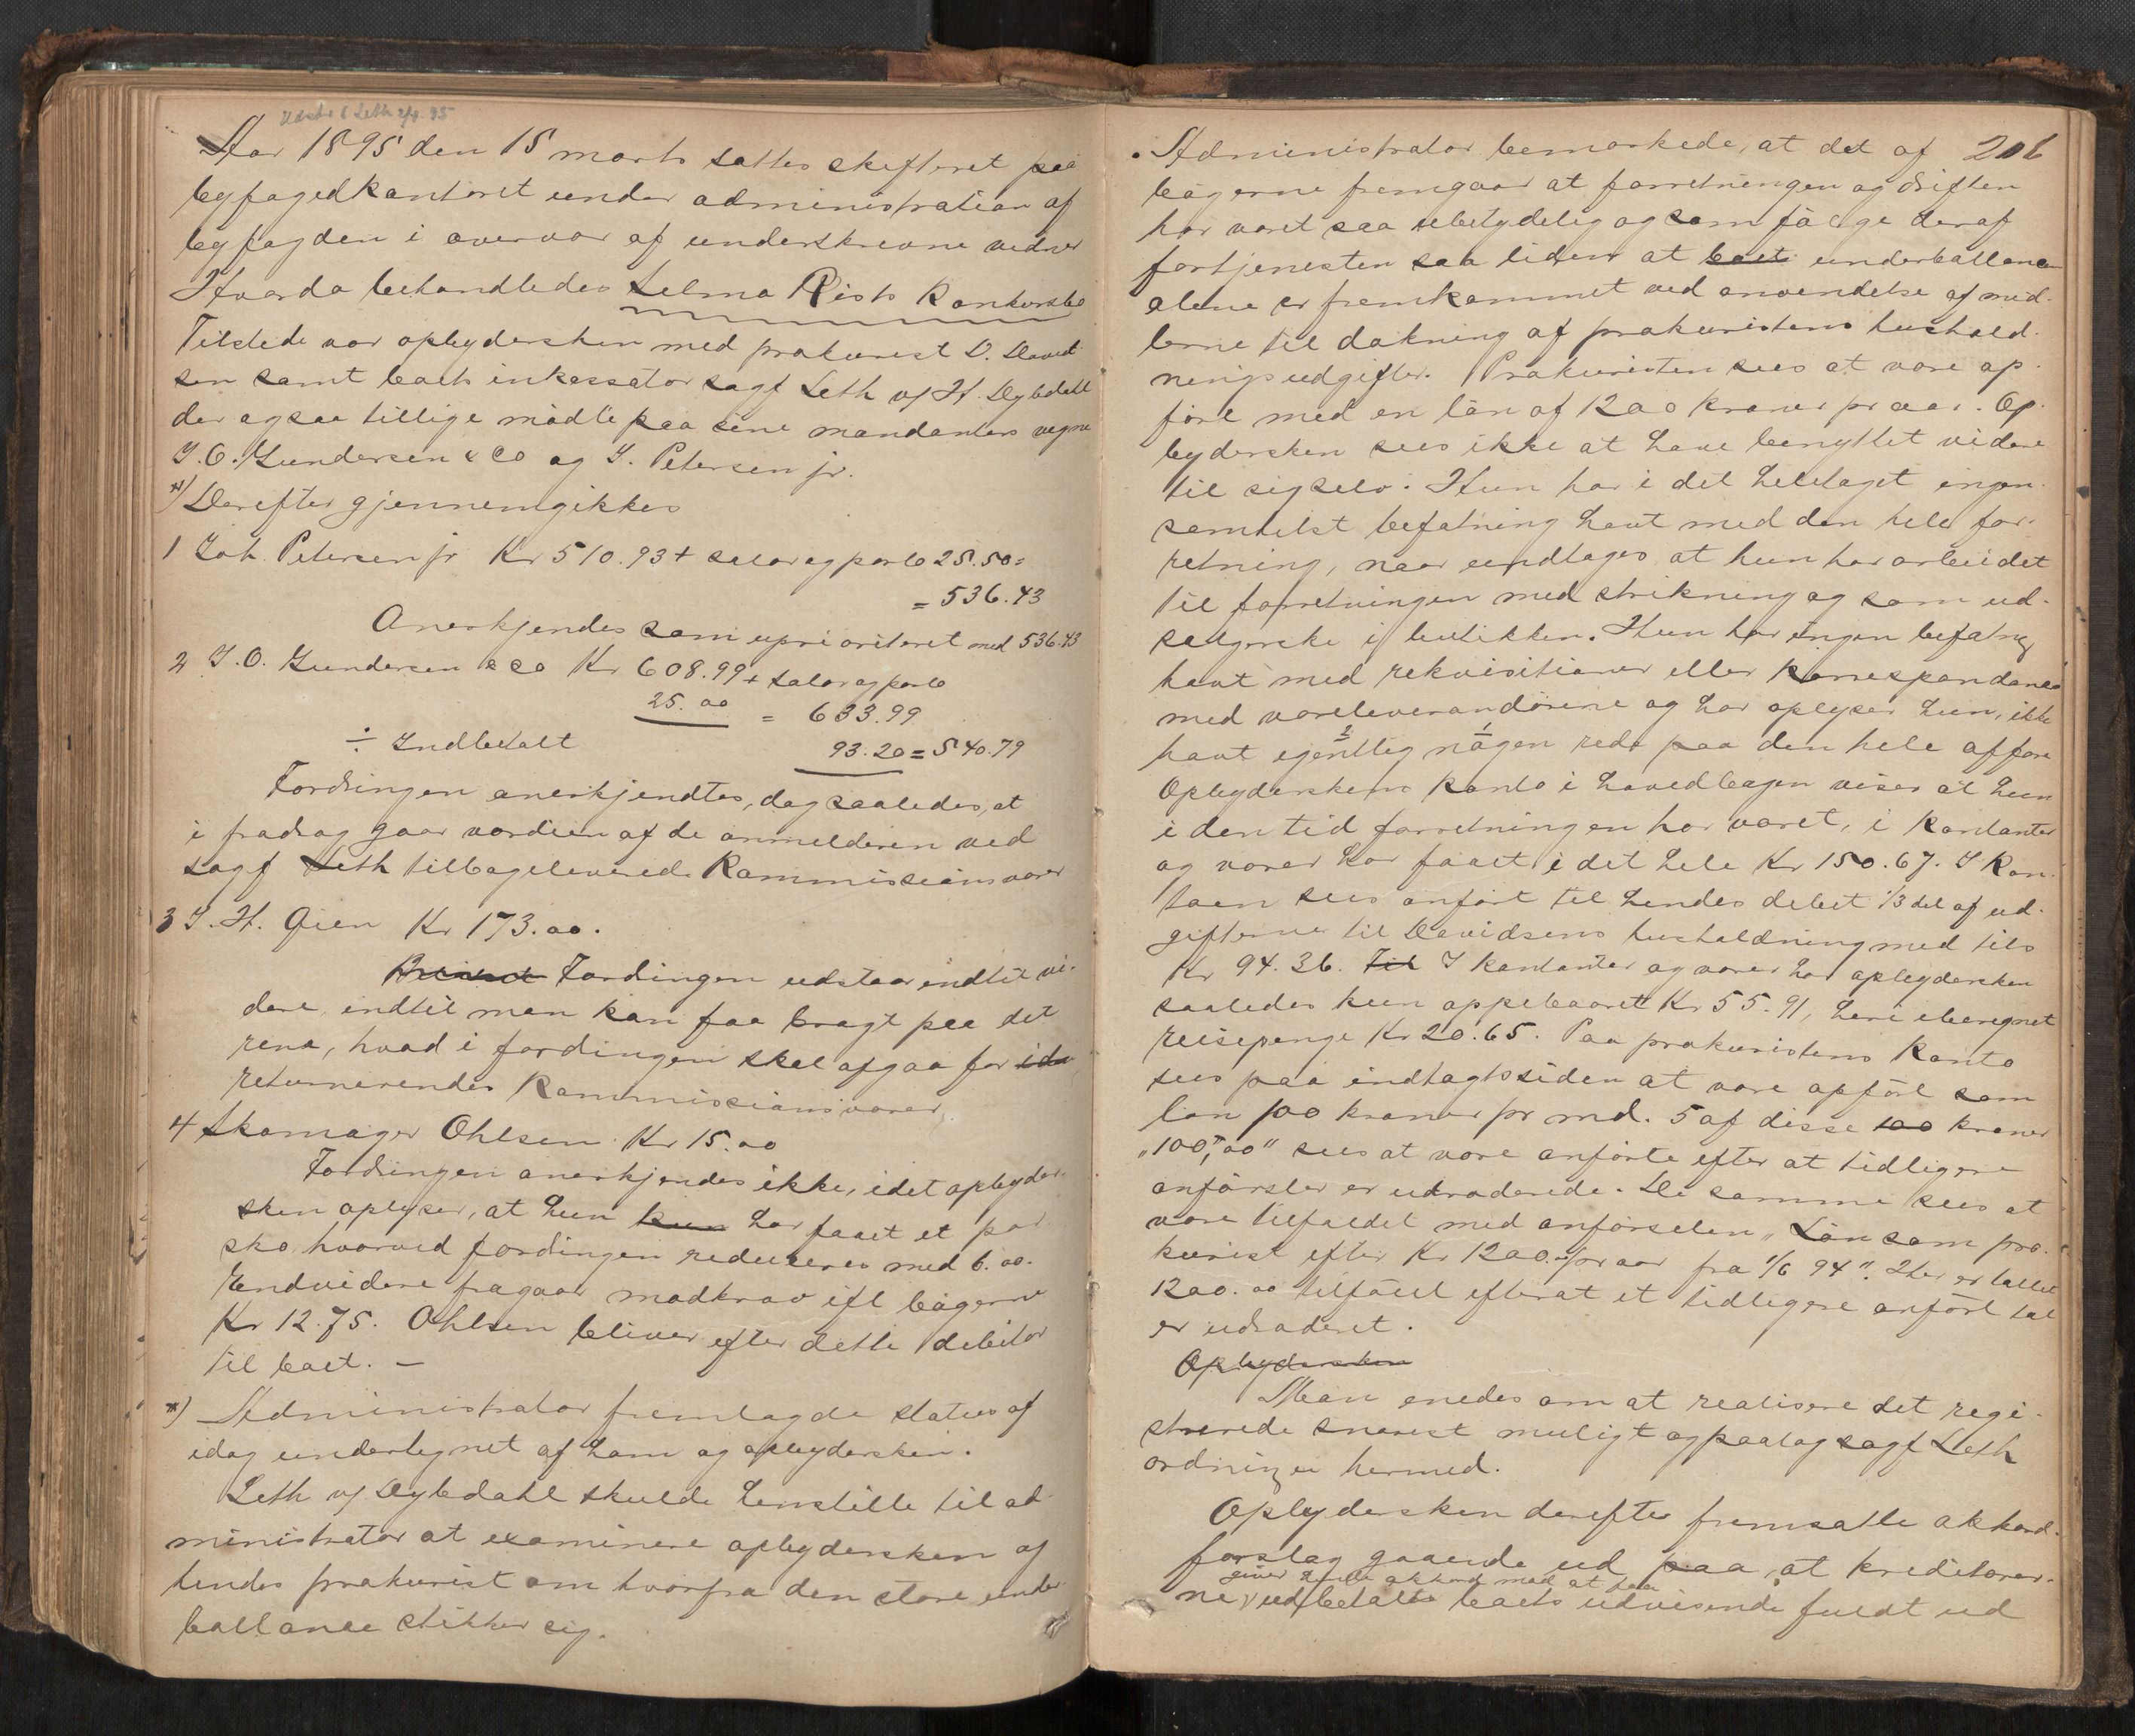 Aar 1895 den 15 marts sattes skifteret paa
byfogedkontoret under administration af
byfogden i overvær af underskrevne vidner
Hvorda behandledes Selma Rists Konkursbo
Tilstede var opbydersken med prokurist D. David-
sen samt boets inkassator sagf Leth v/ H. Dybdahl
der ogsaa tillige mødte paa sine mandanters vegne
J. O. Gundersen & Co og J. Petersen jr.
*) Derefter gjennemgikkes
1 Joh. Petersen jr Kr 510.93 + salær og porto 25.50 =
= 536.43
Anerkjendes som uprioriteret med 536.43
2 J. O. Gundersen & Co Kr 608.99 + salær og porto
25.00 = 633.99
÷ Indbetalt 93.20 = 540.79
Fordringen anerkjendtes, dog saaledes, at
i fradrag gaar værdien af de anmelderen ved
sagf Leth tilbageleverede Kommissionsvarer
3 J. H. Gien Kr 173.00.
Fordingen udstaar indtil vi-
dere, indtil man kan faa bragt paa det
rene, hvad i fordingen skal afgaa for
returnerendes Kommissionsvarer.
4 Skomager Ohlsen Kr 15.00
Fordringen anerkjendes ikke, idet opbyder-
sken oplyser, at hun kun har faaet et par
sko hvorved fordingen reduceres med 6.00.
Endvidere fragaar modkrav ifl bøgerne
Kr 12.75. Ohlsen bliver efter dette debitor
til boet. —
*) Administrator fremlagde status af
idag undertegnet af ham og opbydersken.
Leth v/ Dybdahl skulde henstille til ad-
ministrator at examinere opbydersken og
hendes prokurist om hvorfra den store under-
ballance stikker sig.
Administrator bemærkede, at det af 206
bøgerne fremgaar at forretningen og driften
har været saa ubetydelig og som følge deraf
fortjenesten saa liden at boets underballance
alene er fremkommet ved anvendelse af mid-
lerne til dækning af prokuristens hushold-
ningsudgifter. Prokuristen sees at være op-
ført med en løn af 1200 kroner pr aar. Op-
bydersken sees ikke at have benyttet videre
til sig selv. Hun har i det heletaget ingen-
somhelst befatning havt med den hele for-
retning, naar undtages at hun har arbeidet
til forretningen med strikning og som ud-
salgerske i butikken. Hun har ingen befatng
havt med rekvisitioner eller Korrespondance
med vareleverandørene og har oplyser hun, ikke
havt egentlig nogen rede paa den hele affære
Opbyderskens konto i hovedbogen viser at hun
i den tid forretningen har været, i Kontanter
og varer har faaet i det hele Kr 150.67. I Kon-
toen sees anført til hendes debet 1/3 del af ud-
gifterne til Davidsens husholdning med tils
Kr 94.36. Til I kontanter og varer har opbydersken
saaledes kun oppebaaret Kr 55.91, heri iberegnet
reisepenge Kr 20.65. Paa prokuristens Konto
sees paa indtagtssiden at være opført som
løn 100 kroner pr md. 5 af disse 100 kroner
"100,00" sees at være anførte efter at tidligere
anførsler er udraderede. De samme sees at
være tilfældet med anførselen "Løn som pro-
kurist efter Kr 1200 pr aar fra 1/6 94". Her er tallet
1200.00 tilføiet efterat et tidligere anført tal
er udraderet.
Opbydersken
Man enedes om at realisere det regi-
strerede snarest muligt og paatog sagf Leth
ordningen hermed.
Opbydersken derefter fremsatte akkord-
forslag gaaende ud paa, at kreditorer-
akkord mod at faa
ne udbetalts boets udvisende fuldt ud